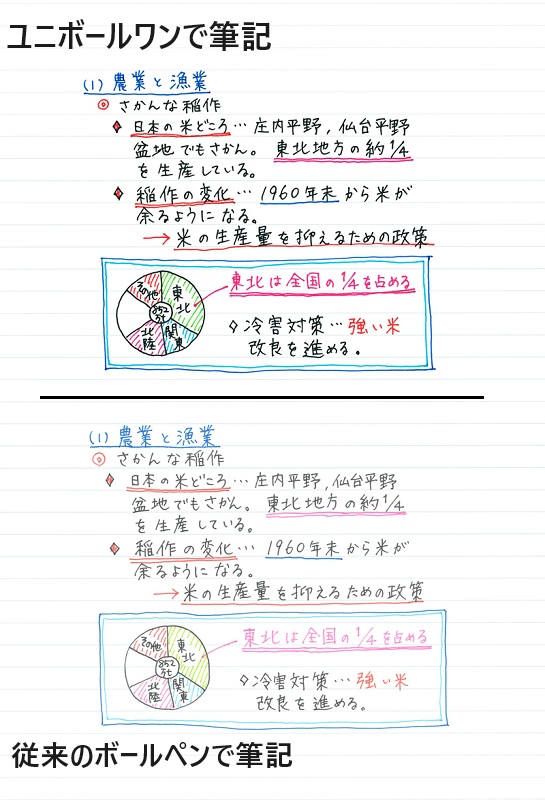 ユニボールワンで筆記
(1) 農業と漁業
◎ さかんな稲作
◆ 日本の米どころ… 庄内平野,仙台平野
盆地でもさかん。 東北地方の約1/4
を生産している。
◆ 稲作の変化… 1960年末から米が
余るようになる。
→ 米の生産量を抑えるための政策
その他
東北
852万t
北陸
関東
東北は全国の1/4を占める
◇冷害対策…強い米
改良を進める。
(1) 農業と漁業
◎ さかんな稲作
◆ 日本の米どころ… 庄内平野,仙台平野
盆地でもさかん。 東北地方の約1/4
を生産している。
◆ 稲作の変化… 1960年末から米が
余るようになる。
→ 米の生産量を抑えるための政策
その他
東北
852万t
北陸
関東
東北は全国の1/4を占める
◇冷害対策…強い米
改良を進める。
従来のボールペンで筆記